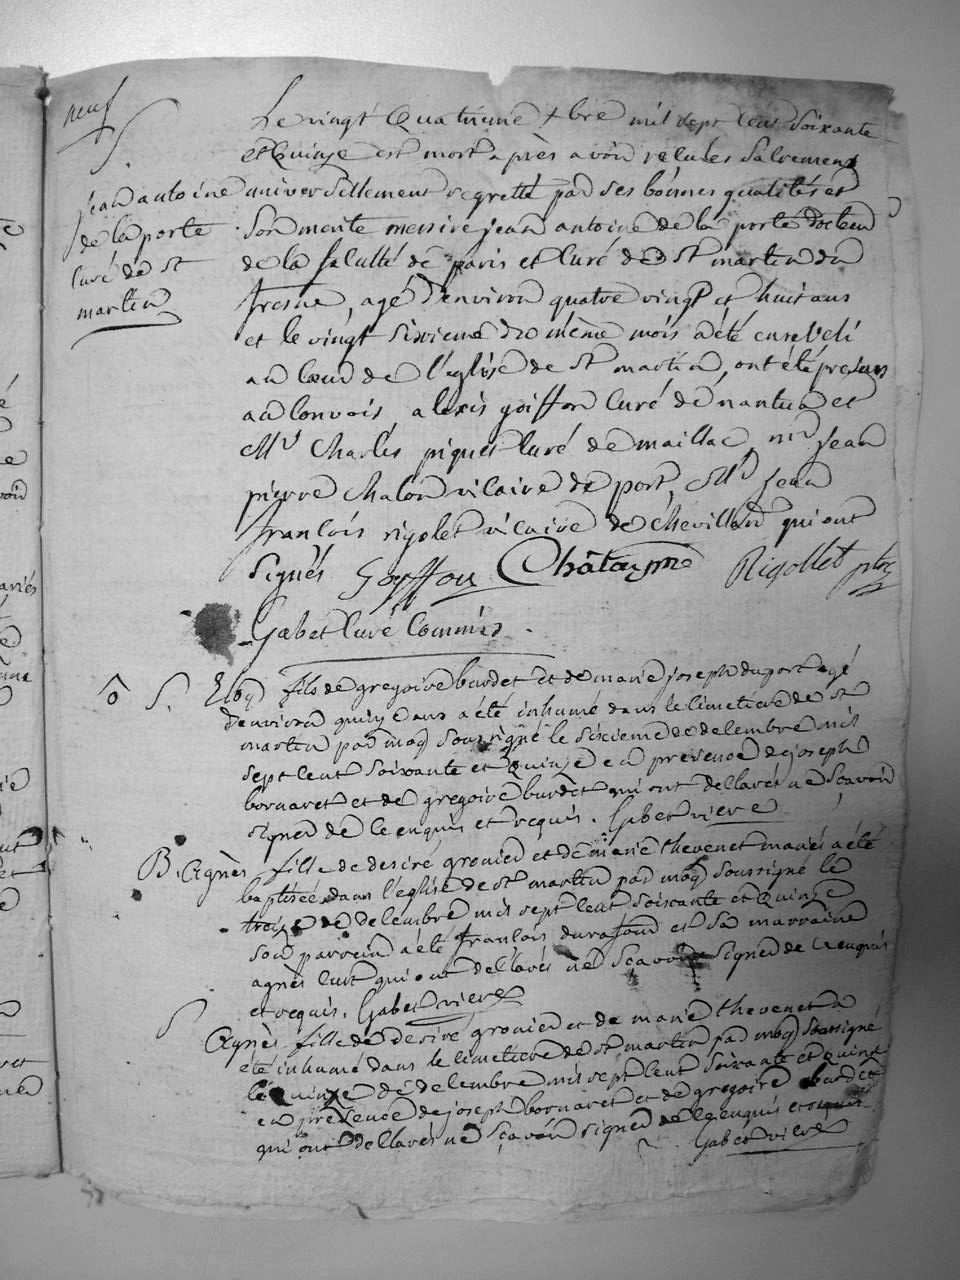 neuf
S.
jean antoine
de la porte
curé de st
martin
Le vingt Quatrieme xbre mil sept cent soixante
et Quinze est mort apres avoir recu les sacremens
universellement regretté par ses bonnes qualités et
son merite messire jean antoine de la porte docteur
de la faculté de paris et curé de st martin du
fresne, agé d'environ quatre vingt et huit ans
et le vingt sixieme du même mois a été enseveli
au cœur de l'église de st martin, ont été presens
au convois alexis goiffon curé de nantua et
Mr Charles piquet curé de maillac, mr jean
pierre chaton vicaire de port, Mr jean
francois rigolet vicaire de chevillard qui ont
signés Goyffon Rigollet ptre
Gabet curé commis
ô S. Eloy fils de gregoire burdet et de marie joseph duport agé
d'environ quinze ans a été inhumé dans le cimetiere de st
martin par moy soussigné le sixieme de decembre mil
sept cent soixante et Quinze en presence de joseph
bornaret et de gregoire burdet qui ont declarés ne sçavoir
signer de ce enquis et requis. Gabet vicre
B. Agnès fille de desiré gronier et de marie thevenet mariés a été
baptisée dans l'église de st martin par moy soussigné le
treize de decembre mil sept cent soixante et Quinze
son parrein a été francois durafour et sa marraine
agnès cuit qui ont declarés ne sçavoir signer de ce enquis
et requis. Gabet vicre
S Agnès fille de desiré gronier et de marie thevenet a
été inhumé dans le cimetiere de st martin par moy soussigné
le Quinze de decembre mil sept cent soixante et quinze
en presence de joseph bornaret et de gregoire burdet
qui ont declarés ne sçavoir signer de ce enquis et requis
Gabet vicre